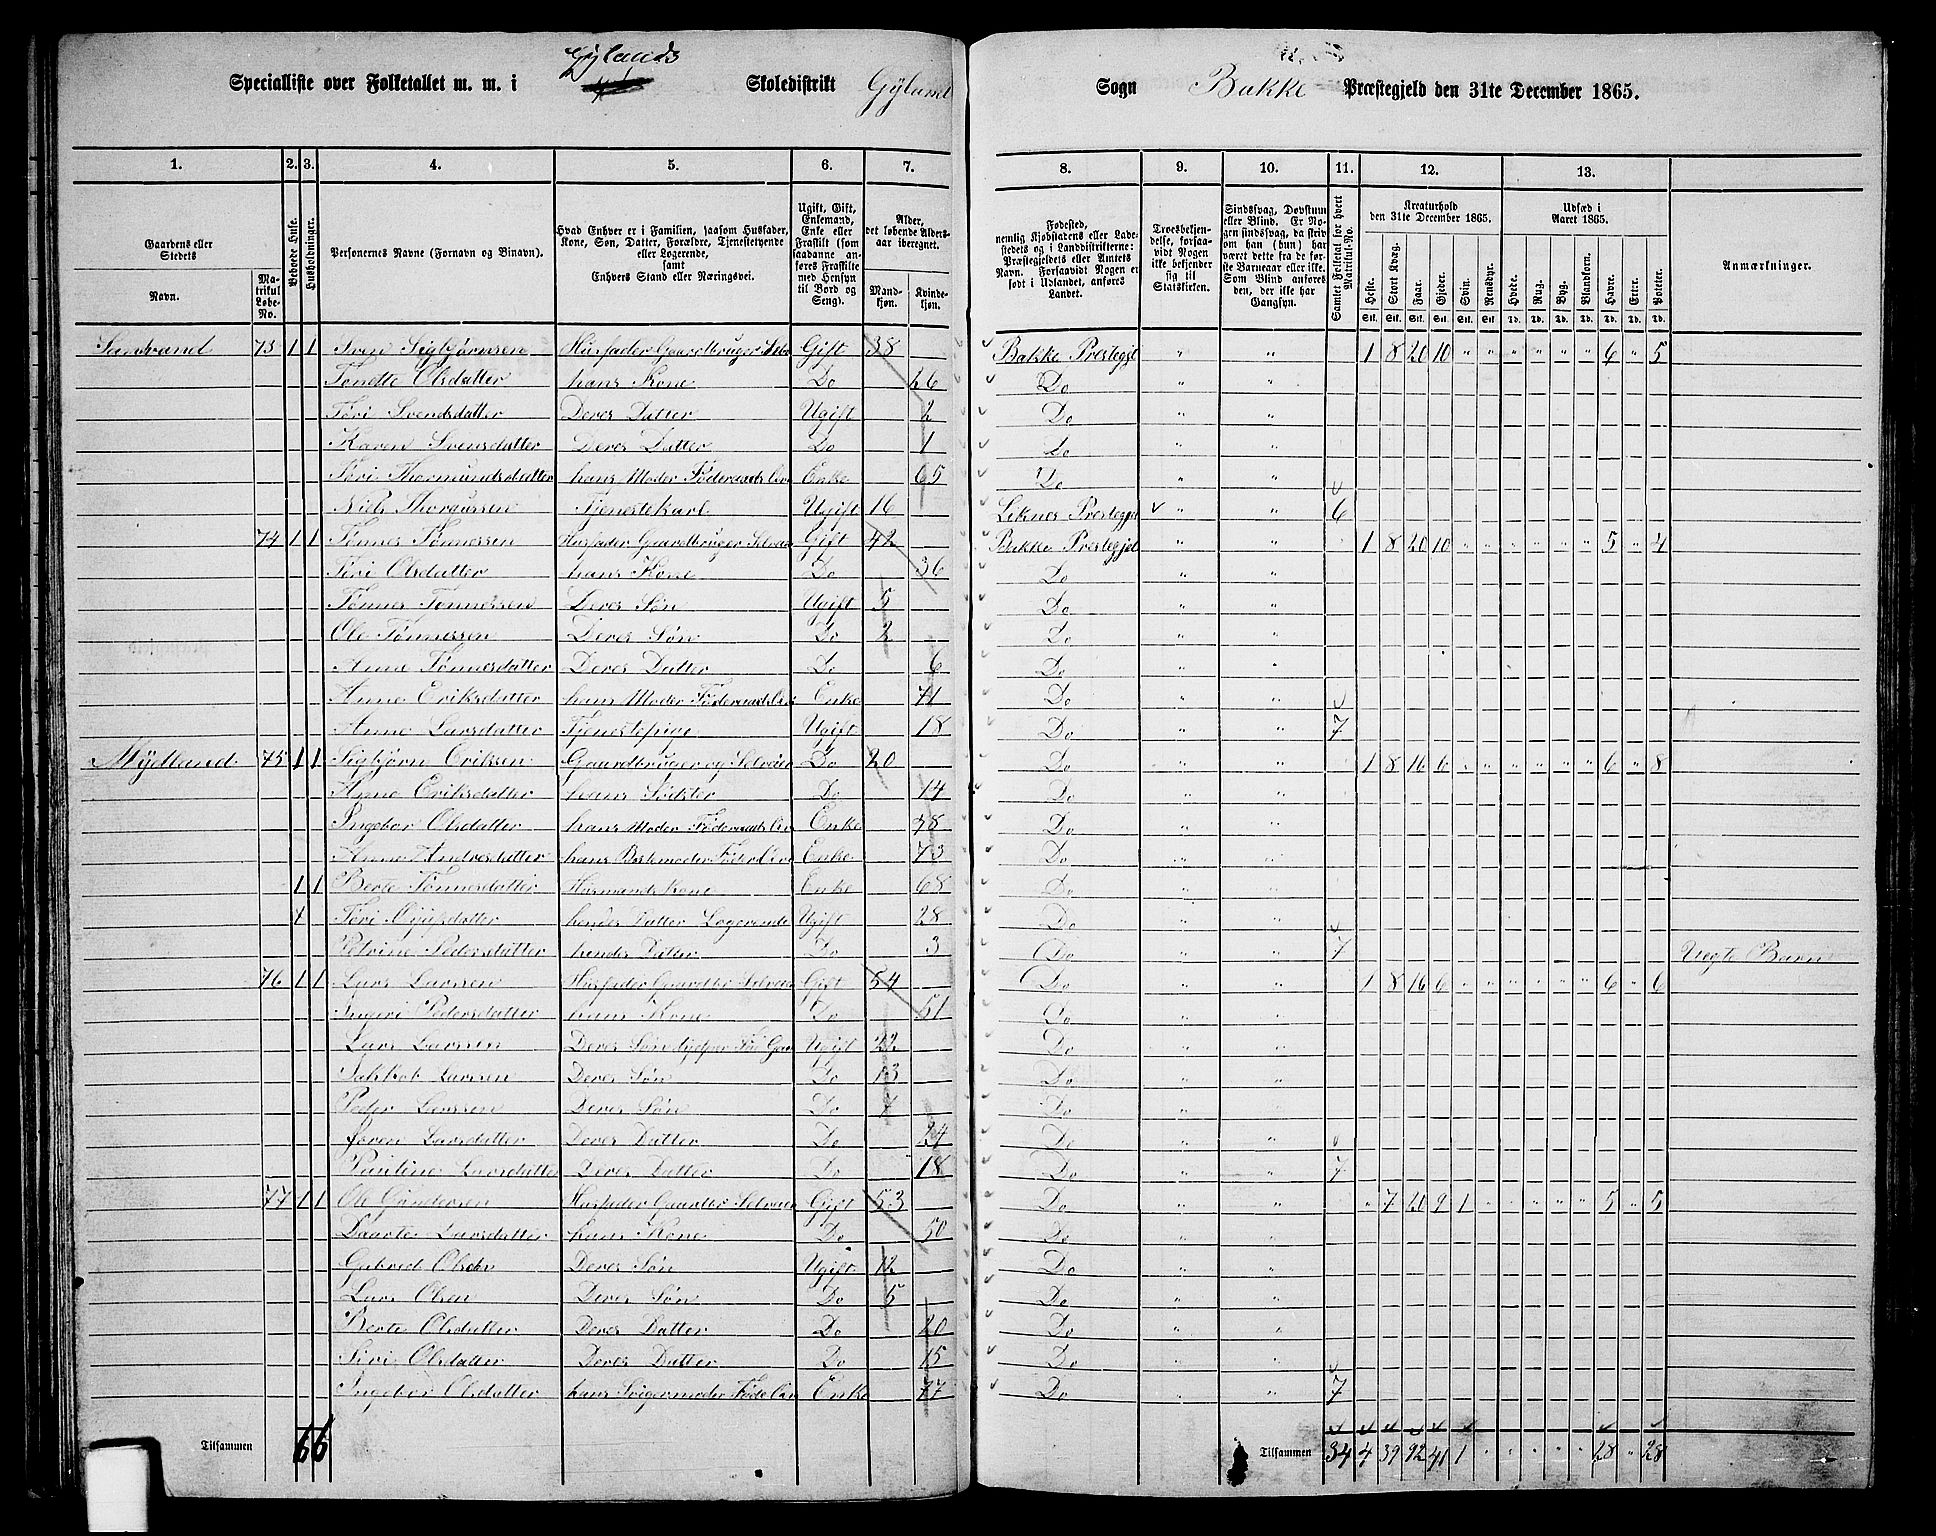 Specialliste over Folketallet m. m. i Gylands Skoledistrikt Gyland Sogn Bakke Præstegjeld den 31te December 1865.
1. 2. 3. 4. 5. 6. 7. 8. 9. 10. 11. 12. 13.
Gaardens eller Stedets Navn. Matrikul Løbe-No. Beboede Huse. Husholdninger. Personernes Navne (Fornavn og Binavn). Hvad Enhver er i Familien, saasom Husfader, Kone, Søn, Datter, Forældre, Tjenestetyende eller Logerende, samt Enhvers Stand eller Næringsvei. Ugift, Gift, Enkemand, Enke eller Fraskilt (som saadanne anføres Fraskilte med Hensyn til Bord og Seng). Alder, det løbende Alders-aar iberegnet. Mandkjøn. Kvindekjøn.
Fødested, nemlig Kjøbstadens eller Ladestedets og i Landdistrikterne: Præstegjeldets eller Amtets Navn. Forsaavidt Nogen er født i Udlandet, anføres Landet. Troesbekjendelse, forsaavidt Nogen ikke bekjender sig til Statskirken. Sindssvag, Døvstum eller Blind. Er Nogen sindssvag, da skrives om han (hun) har været dette fra de første Barneaar eller ikke. Som Blind anføres den, der ikke har Gangsyn. Samlet Folketal for hvert Matrikul-No. Kreaturhold den 31te December 1865. Heste. Stort Kvæg. Faar. Gjeder. Svin. Rensdyr. Udsæd i Aaret 1865. Hvede. Rug. Byg. Blandkorn. Havre. Erter. Poteter. Anmærkninger.
Sandvand 73 1 1 Sven Sigbjørnsen Husfader Gaardbruger Gift 38 Bakke Prestegjel " " 1 8 20 10 " " " " " " 6 " 5
Tonette Olsdatter hans Kone Do 26 Do " "
Siri Svendsdatter Deres Datter Ugift 2 Do " "
Karen Svensdatter Deres Datter Do 1 Do " "
Siri Thormundsdatter hans Moder Føderaads Enke 65 Do " "
Niels Tjenestekarl Ugift 16 Liknes Prestegjel " " 6
74 1 1 Tønnes Tønnessen Husfader Gaardbruger Selveier Gift 42 Bakke Prestegjel " " 1 8 20 10 " " " " " " 5 " 4
Siri Olsdatter hans Kone Do 36 Do " "
Tønnes Tønnessen Deres Søn Ugift 5 Do " "
Ole Tønnessen Deres Søn Do 2 Do " "
Anne Tønnesdatter Deres Datter Do 6 Do " "
Anne Eriksdatter hans Moder Føderaads Enke 71 Do " "
Anne Larsdatter Tjenestepige Ugift 18 Do " " 7
Mydland 75 1 1 Sigbjørn Eriksen Gaardbruger og Selveier Do 20 Do " " 1 8 16 6 " " " " " " 6 " 8
Anne Eriksdatter hans Sødster Do 14 Do " "
Ingebor Olsdatter hans Moder Føderaads Enke 48 Do " "
Anne Andresdatter hans Bestemoder Enke 73 Do " "
1 1 Berte Tønnesdatter Husmands Kone Enke 68 Do " "
Siri hendes Datter Logerende Ugift 28 Do " "
Petrine Pedersdatter hendes Datter Do 3 Do " " 7 Uegte Barn
76 1 1 Lars Larssen Husfader Gaardbr Selveier Gift 54 Do " " 1 8 16 6 " " " " " " 6 " 6
Pedersdatter hans Kone Do 51 Do " "
Lars Larssen Deres Søn Ugift 22 Do " "
Jakkob Larssen Deres Søn Do 13 Do " "
Peder Larssen Deres Søn Do 7 Do " "
Søren Larsdatter Deres Datter Do 24 Do " "
Pauline Larsdatter Deres Datter Do 18 Do " " 7
77 1 1 Ole Gundersen Husfader Gaardbr Selveier Gift 53 Do " " " 7 20 9 1 " " " " " 5 " 5
Daarte Larsdatter hans Kone Do 50 Do " "
Olsen Deres Søn Ugift 12 Do " "
Lars Olsen Deres Søn Do 5 Do " "
Berte Olsdatter Deres Datter Do 20 Do " "
Siri Olsdatter Deres Datter Do 15 Do " "
Ingebor Olsdatter hans Svigermoder Enke 77 Do " " 7
Tilsammen 6 6 Tilsammen 34 4 39 92 41 1 " " " " " 28 " 28